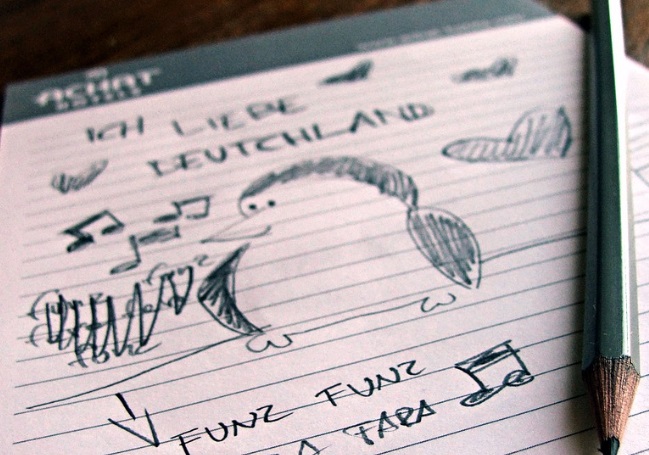 ACHAT
HOTELS
ICH LIEBE
DEUTCHLAND
FUNZ FUNZ
TAPA